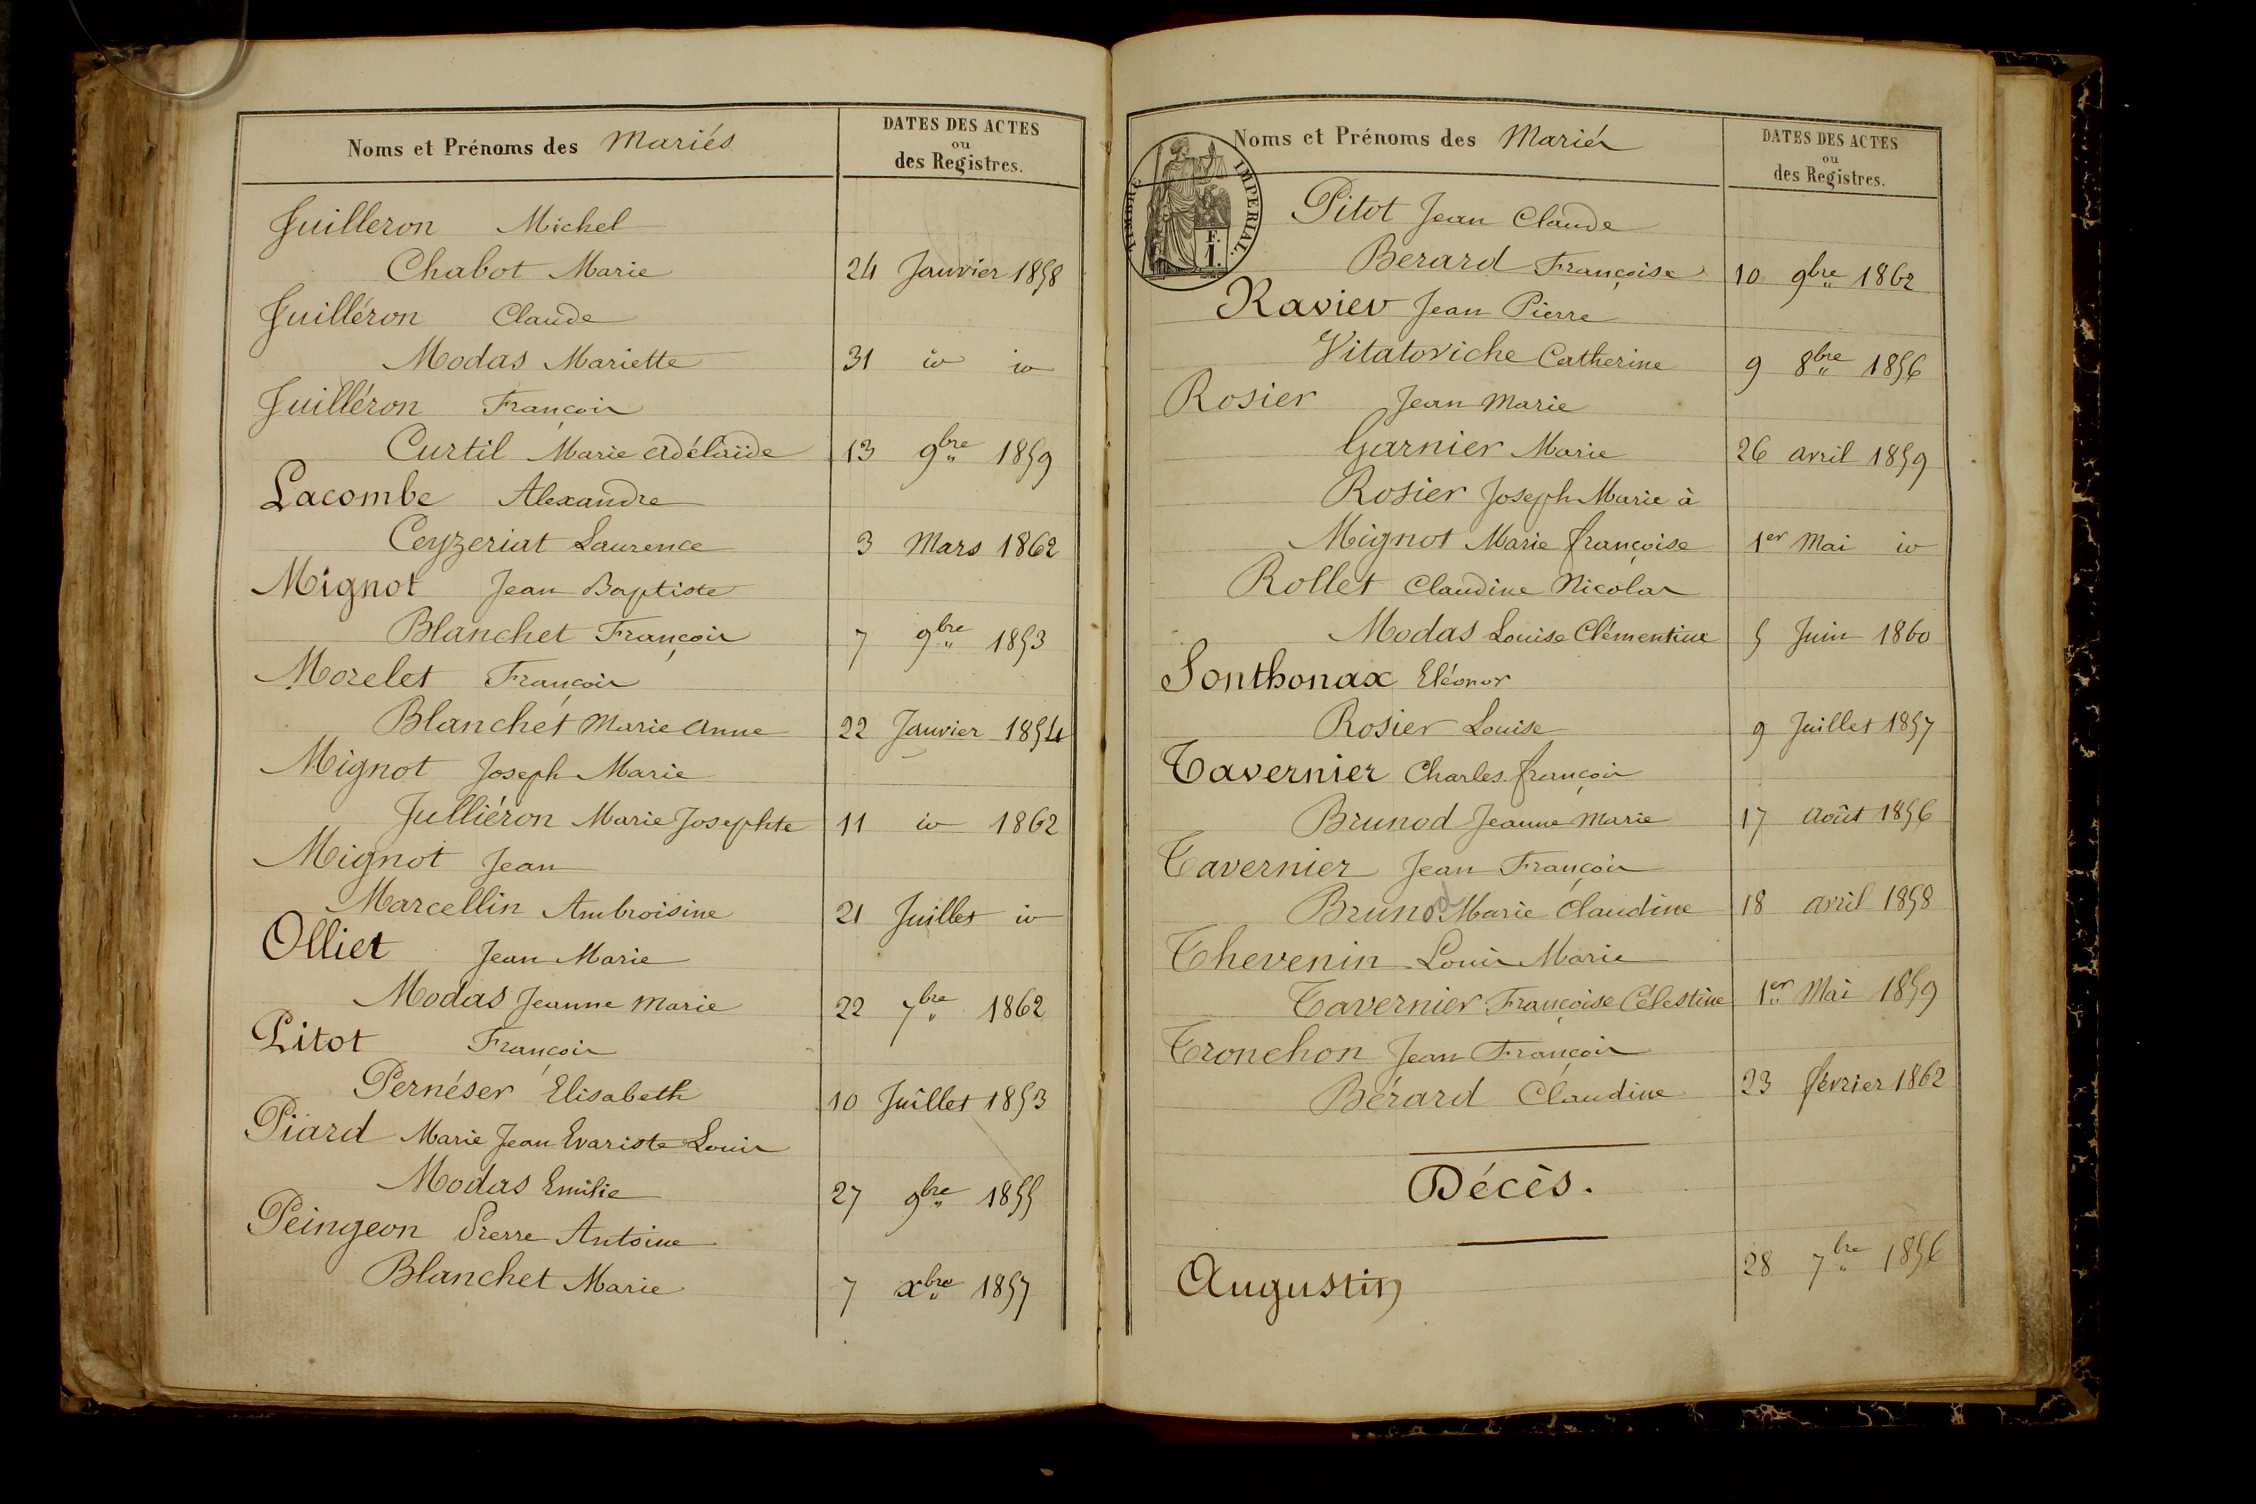 Noms et Prénoms des Mariés
DATES DES ACTES
ou
des Registres.
Juilleron Michel
Chabot Marie 24 Janvier 1858
Juilléron Claude
Modas Mariette 31 id id
Juilléron François
Curtil Marie Adélaïde 13 9bre 1859
Lacombe Alexandre
Ceyzeriat Laurence 3 Mars 1862
Mignot Jean Baptiste
Blanchet François 7 9bre 1853
Morelet François
Blanchet Marie Anne 22 Janvier 1854
Mignot Joseph Marie
Julliéron Marie Josephte 11 id 1862
Mignot Jean
Marcellin Ambroisine 21 Juillet id
Olliet Jean Marie
Modas Jeanne Marie 22 7bre 1862
Pitot François
Pernéser Elisabeth 10 Juillet 1853
Piard Marie Jean Evariste Louis
Modas Emilie 27 9bre 1855
Peingeon Pierre Antoine
Blanchet Marie 7 xbre 1857
Noms et Prénoms des Mariés
DATES DES ACTES
ou
des Registres.
TIMBRE IMPERIAL.
F.
1.
Pitot Jean Claude
Berard Françoise 10 9bre 1862
Ravier Jean Pierre
Vitatoviche Catherine 9 8bre 1856
Rosier Jean Marie
Garnier Marie 26 avril 1859
Rosier Joseph Marie à
Mignot Marie françoise 1er Mai id
Rollet Claudine Nicolas
Modas Louise Clémentine 5 Juin 1860
Sonthonax Eléonor
Rosier Louise 9 Juillet 1857
Tavernier Charles françois
Brunod Jeanne Marie 17 Août 1856
Tavernier Jean François
Brunod Marie Claudine 18 avril 1858
Thevenin Louis Marie
Tavernier Françoise Célestine 1er Mai 1859
Tronchon Jean François
Bérard Claudine 23 février 1862
Décès.
Augustin 28 7bre 1856